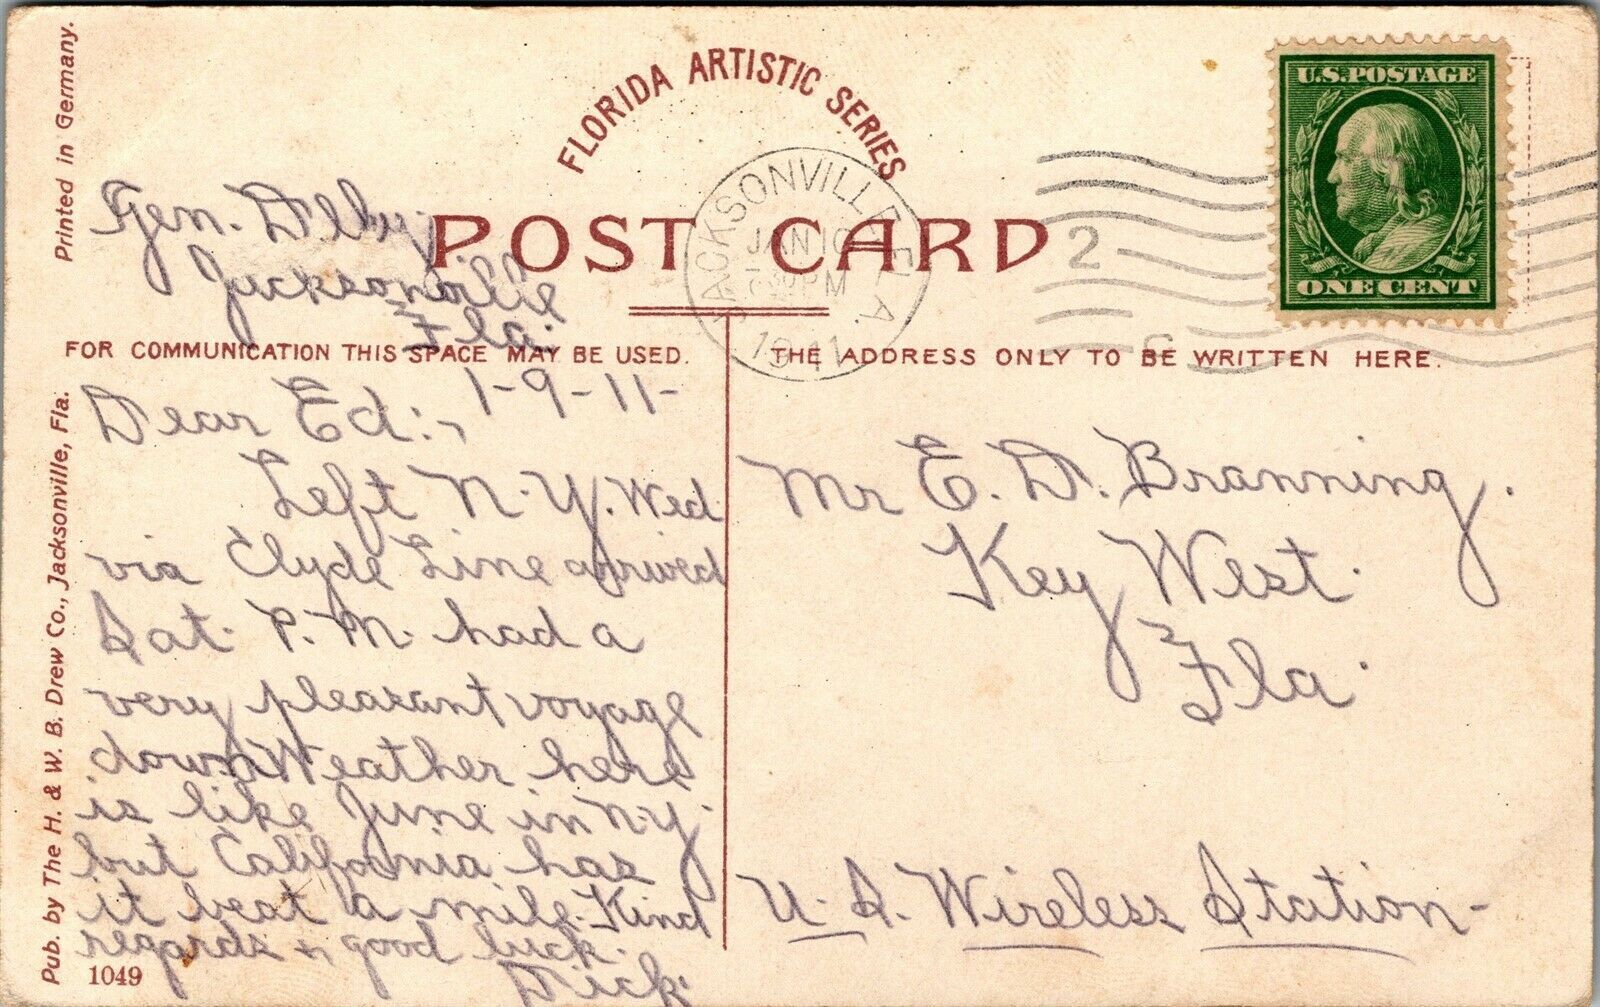 Printed in Germany.
FLORIDA ARTISTIC SERIES
POST CARD
U.S. POSTAGE
ONE CENT
JACKSONVILLE FLA.
JAN 10
PM
1911
2
Gen. Dlby,
Jacksonville
Fla.
FOR COMMUNICATION THIS SPACE MAY BE USED.
THE ADDRESS ONLY TO BE WRITTEN HERE.
1-9-11-
Dear Ed:-
Left N.Y. Wed
via Clyde Line arrived
Sat. P.M. had a
very pleasant voyage
down Weather here
is like June in N.Y.
but California has
it beat a mile. Kind
regards + good luck.
Dick.
Mr E. D. Branning.
Key West.
Fla.
U.S. Wireless Station-
Pub. by The H. & W. B. Drew Co., Jacksonville, Fla.
1049